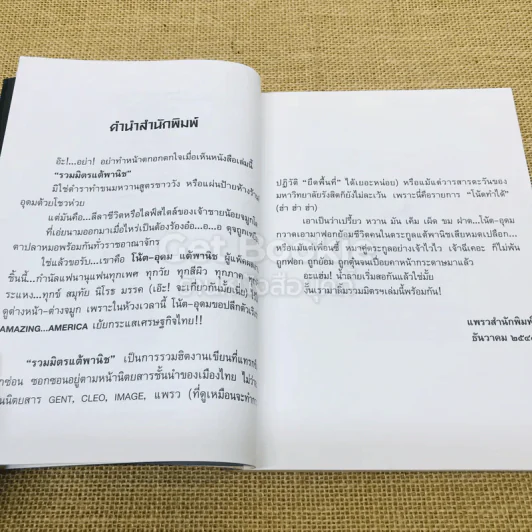 คำนำสำนักพิมพ์
อ๊ะ!...อย่า! อย่าทำหน้าตกอกตกใจเมื่อเห็นหนังสือเล่มนี้
"รวมมิตรแต้พานิช"
มิใช่ตำราทำขนมหวานสูตรชาววัง หรือแผ่นป้ายห้างร้าน
อุดมด้วยโชวห่วย
แต่มันคือ...ลีลาชีวิตหรือไลฟ์สไตล์ของเจ้าชายน้อยจมูกโต
ที่เอ่ยนามออกมาเมื่อไหร่เป็นต้องร้องอ๋อ...อ...อ
คาปลาหมอพร้อมกันทั่วราชอาณาจักร
ใช่แล้วขอรับ...เขาคือ โน้ต-อุดม แต้พานิช
ชิ้นนี้...กำนัลแฟนานุแฟนทุกเพศ ทุกวัย ทุกสีผิว ทุกภาค
ระแหง...ทุกข์ สมุทัย นิโรธ มรรค (เอ๊ะ! จะเกี่ยวกันมั้ยเนี่ย)
ดูต่างหน้า-ต่างจมูก เพราะในห้วงเวลานี้ โน้ต-อุดมขอปลีกตัว
AMAZING...AMERICA เย้ยกระแสเศรษฐกิจไทย!!
"รวมมิตรแต้พานิช" เป็นการรวมฮิตงานเขียนที่แทรก
ซ่อน ซอกซอนอยู่ตามหน้านิตยสารชั้นนำของเมืองไทย ไม่ว่า
นิตยสาร GENT, CLEO, IMAGE, แพรว (ที่ดูเหมือนจะทำ
ปฏิวัติ "ยึดพื้นที่" ได้เยอะหน่อย) หรือแม้แต่วารสารตะวันของ
มหาวิทยาลัยรังสิตก็ยังไม่ละเว้น เพราะนี่คือรายการ "โน้ตทำได้"
(ฮ่า ฮ่า ฮ่า)
เอาเป็นว่าเปรี้ยว หวาน มัน เค็ม เผ็ด ขม ฝาด...โน้ต-อุดม
กวาดเอามาฟอกย้อมชีวิตคนในตระกูลแต้พานิชเสียหมดเปลือก...
หรือแม้แต่เพื่อนซี้ หมาคู่ตระกูลอย่างเจ้าไวไว เจ้าเฉี่ย ก็ไม่พ้น
ถูกฟอก ถูกย้อม ถูกตุ๋นจนเปื่อยคาหน้ากระดาษมาแล้ว
อะแฮ่ม! น้ำลายเริ่มสอกันแล้วใช่มั้ย
งั้นเรามาดื่มรวมมิตรฯเล่มนี้พร้อมกัน!
แพรวสำนักพิมพ์
ธันวาคม